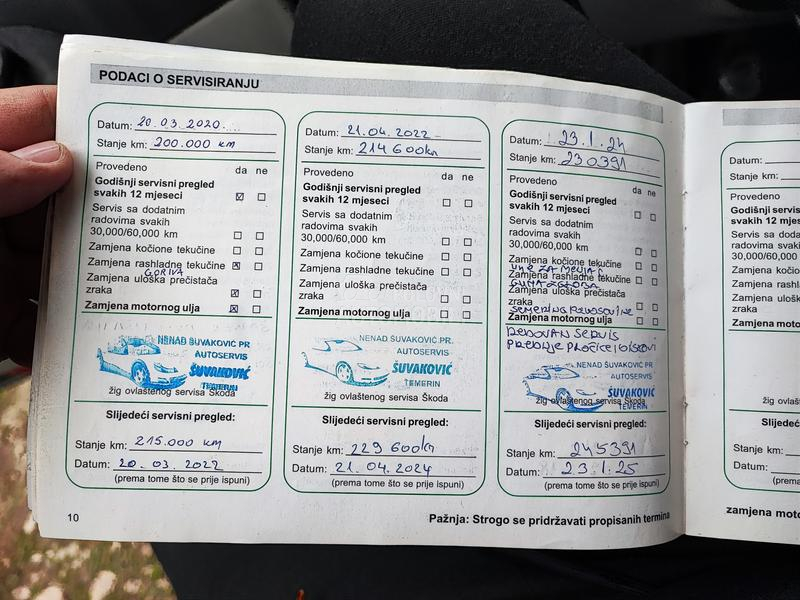 PODACI O SERVISIRANJU
Datum: 20.03.2020.
Stanje km: 200.000 km
Provedeno da ne
Godišnji servisni pregled
svakih 12 mjeseci
Servis sa dodatnim
radovima svakih
30,000/60,000 km
Zamjena kočione tekučine
Zamjena rashladne tekučine
GORIVA
Zamjena uloška prečistača
zraka
Zamjena motornog ulja
NENAD ŠUVAKOVIĆ PR
AUTOSERVIS
ŠUVAKOVIĆ
TEMERIN
žig ovlaštenog servisa Škoda
Slijedeći servisni pregled:
Stanje km: 215.000 km
Datum: 20.03.2022
(prema tome što se prije ispuni)
Datum: 21.04.2022
Stanje km: 214600km
Provedeno da ne
Godišnji servisni pregled
svakih 12 mjeseci
Servis sa dodatnim
radovima svakih
30,000/60,000 km
Zamjena kočione tekučine
Zamjena rashladne tekučine
Zamjena uloška prečistača
zraka
Zamjena motornog ulja
NENAD ŠUVAKOVIĆ PR.
AUTOSERVIS
ŠUVAKOVIĆ
TEMERIN
žig ovlaštenog servisa Škoda
Slijedeći servisni pregled:
Stanje km: 229 600km
Datum: 21.04.2024
(prema tome što se prije ispuni)
Datum: 23.1.24
Stanje km: 230391
Provedeno da ne
Godišnji servisni pregled
svakih 12 mjeseci
Servis sa dodatnim
radovima svakih
30,000/60,000 km
Zamjena kočione tekučine
ZAMENJAC
Zamjena rashladne tekučine
GUMA ZGLOBA
Zamjena uloška prečistača
zraka
Zamjena motornog ulja
REDOVAN SERVIS
PREDNJE PLOČICE I DISKOVI
NENAD ŠUVAKOVIĆ PR
AUTOSERVIS
ŠUVAKOVIĆ
TEMERIN
žig ovlaštenog servisa Škoda
Slijedeći servisni pregled:
Stanje km: 245391
Datum: 23.1.25
(prema tome što se prije ispuni)
10
Pažnja: Strogo se pridržavati propisanih termina
Datum:
Stanje km:
Provedeno
Godišnji servis
svakih 12 mj
Servis sa doda
radovima svak
30,000/60,000
Zamjena kočio
Zamjena rashl
Zamjena ulošk
zraka
Zamjena moto
žig ovlašt
Slijedeć
Stanje km:
Datum:
(prema t
zamjena moto